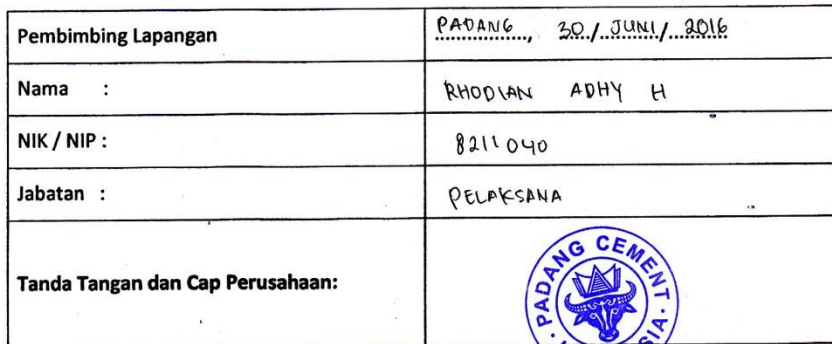 Pembimbing Lapangan
PADANG, 30 / JUNI / 2016
Nama :
RHODIAN ADHY H
NIK / NIP :
8211040
Jabatan :
PELAKSANA
Tanda Tangan dan Cap Perusahaan:
PADANG CEMENT